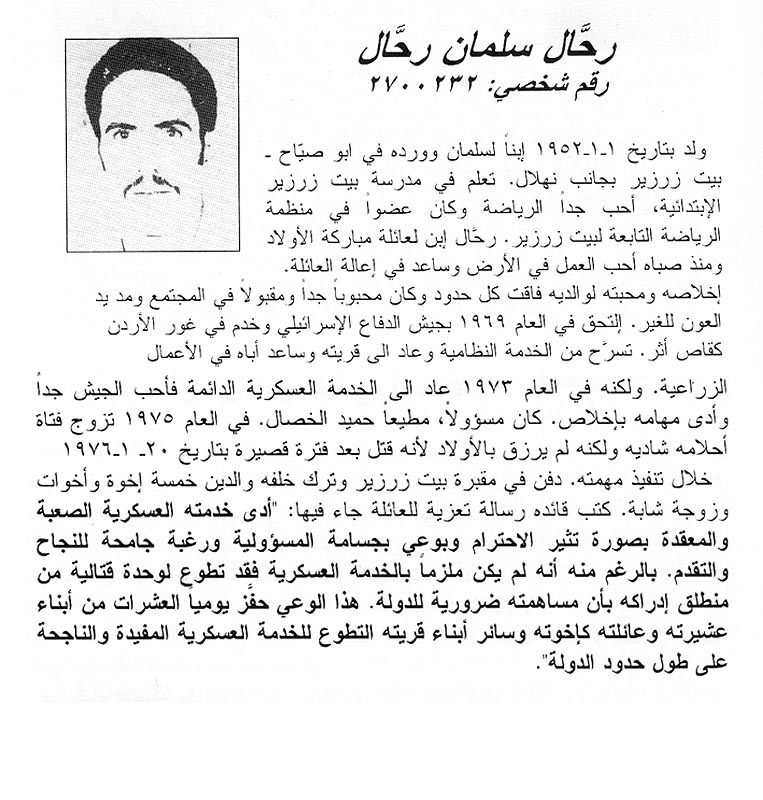 رحَّال سلمان رحَّال
رقم شخصي: ٢٧٠٠٢٣٢
ولد بتاريخ ١-١-١٩٥٢ إبناً لسلمان وورده في ابو صيّاح -
بيت زرزير بجانب نهلال. تعلم في مدرسة بيت زرزير
الإبتدائية، أحب جداً الرياضة وكان عضواً في منظمة
الرياضة التابعة لبيت زرزير. رحَّال إبن لعائلة مباركة الأولاد
ومنذ صباه أحب العمل في الأرض وساعد في إعالة العائلة.
إخلاصه ومحبته لوالديه فاقت كل حدود وكان محبوباً جداً ومقبولاً في المجتمع ومد يد
العون للغير. إلتحق في العام ١٩٦٩ بجيش الدفاع الإسرائيلي وخدم في غور الأردن
كقاص أثر. تسرَّح من الخدمة النظامية وعاد الى قريته وساعد أباه في الأعمال
الزراعية. ولكنه في العام ١٩٧٣ عاد الى الخدمة العسكرية الدائمة فأحب الجيش جداً
وأدى مهامه بإخلاص. كان مسؤولاً، مطيعاً حميد الخصال. في العام ١٩٧٥ تزوج فتاة
أحلامه شاديه ولكنه لم يرزق بالأولاد لأنه قتل بعد فترة قصيرة بتاريخ ٢٠- ١-١٩٧٦
خلال تنفيذ مهمته. دفن في مقبرة بيت زرزير وترك خلفه والدين خمسة إخوة وأخوات
وزوجة شابة. كتب قائده رسالة تعزية للعائلة جاء فيها: "أدى خدمته العسكرية الصعبة
والمعقدة بصورة تثير الاحترام وبوعي بجسامة المسؤولية ورغبة جامحة للنجاح
والتقدم. بالرغم منه أنه لم يكن ملزماً بالخدمة العسكرية فقد تطوع لوحدة قتالية من
منطلق إدراكه بأن مساهمته ضرورية للدولة. هذا الوعي حفَّز يومياً العشرات من أبناء
عشيرته وعائلته كإخوته وسائر أبناء قريته التطوع للخدمة العسكرية المفيدة والناجحة
على طول حدود الدولة".